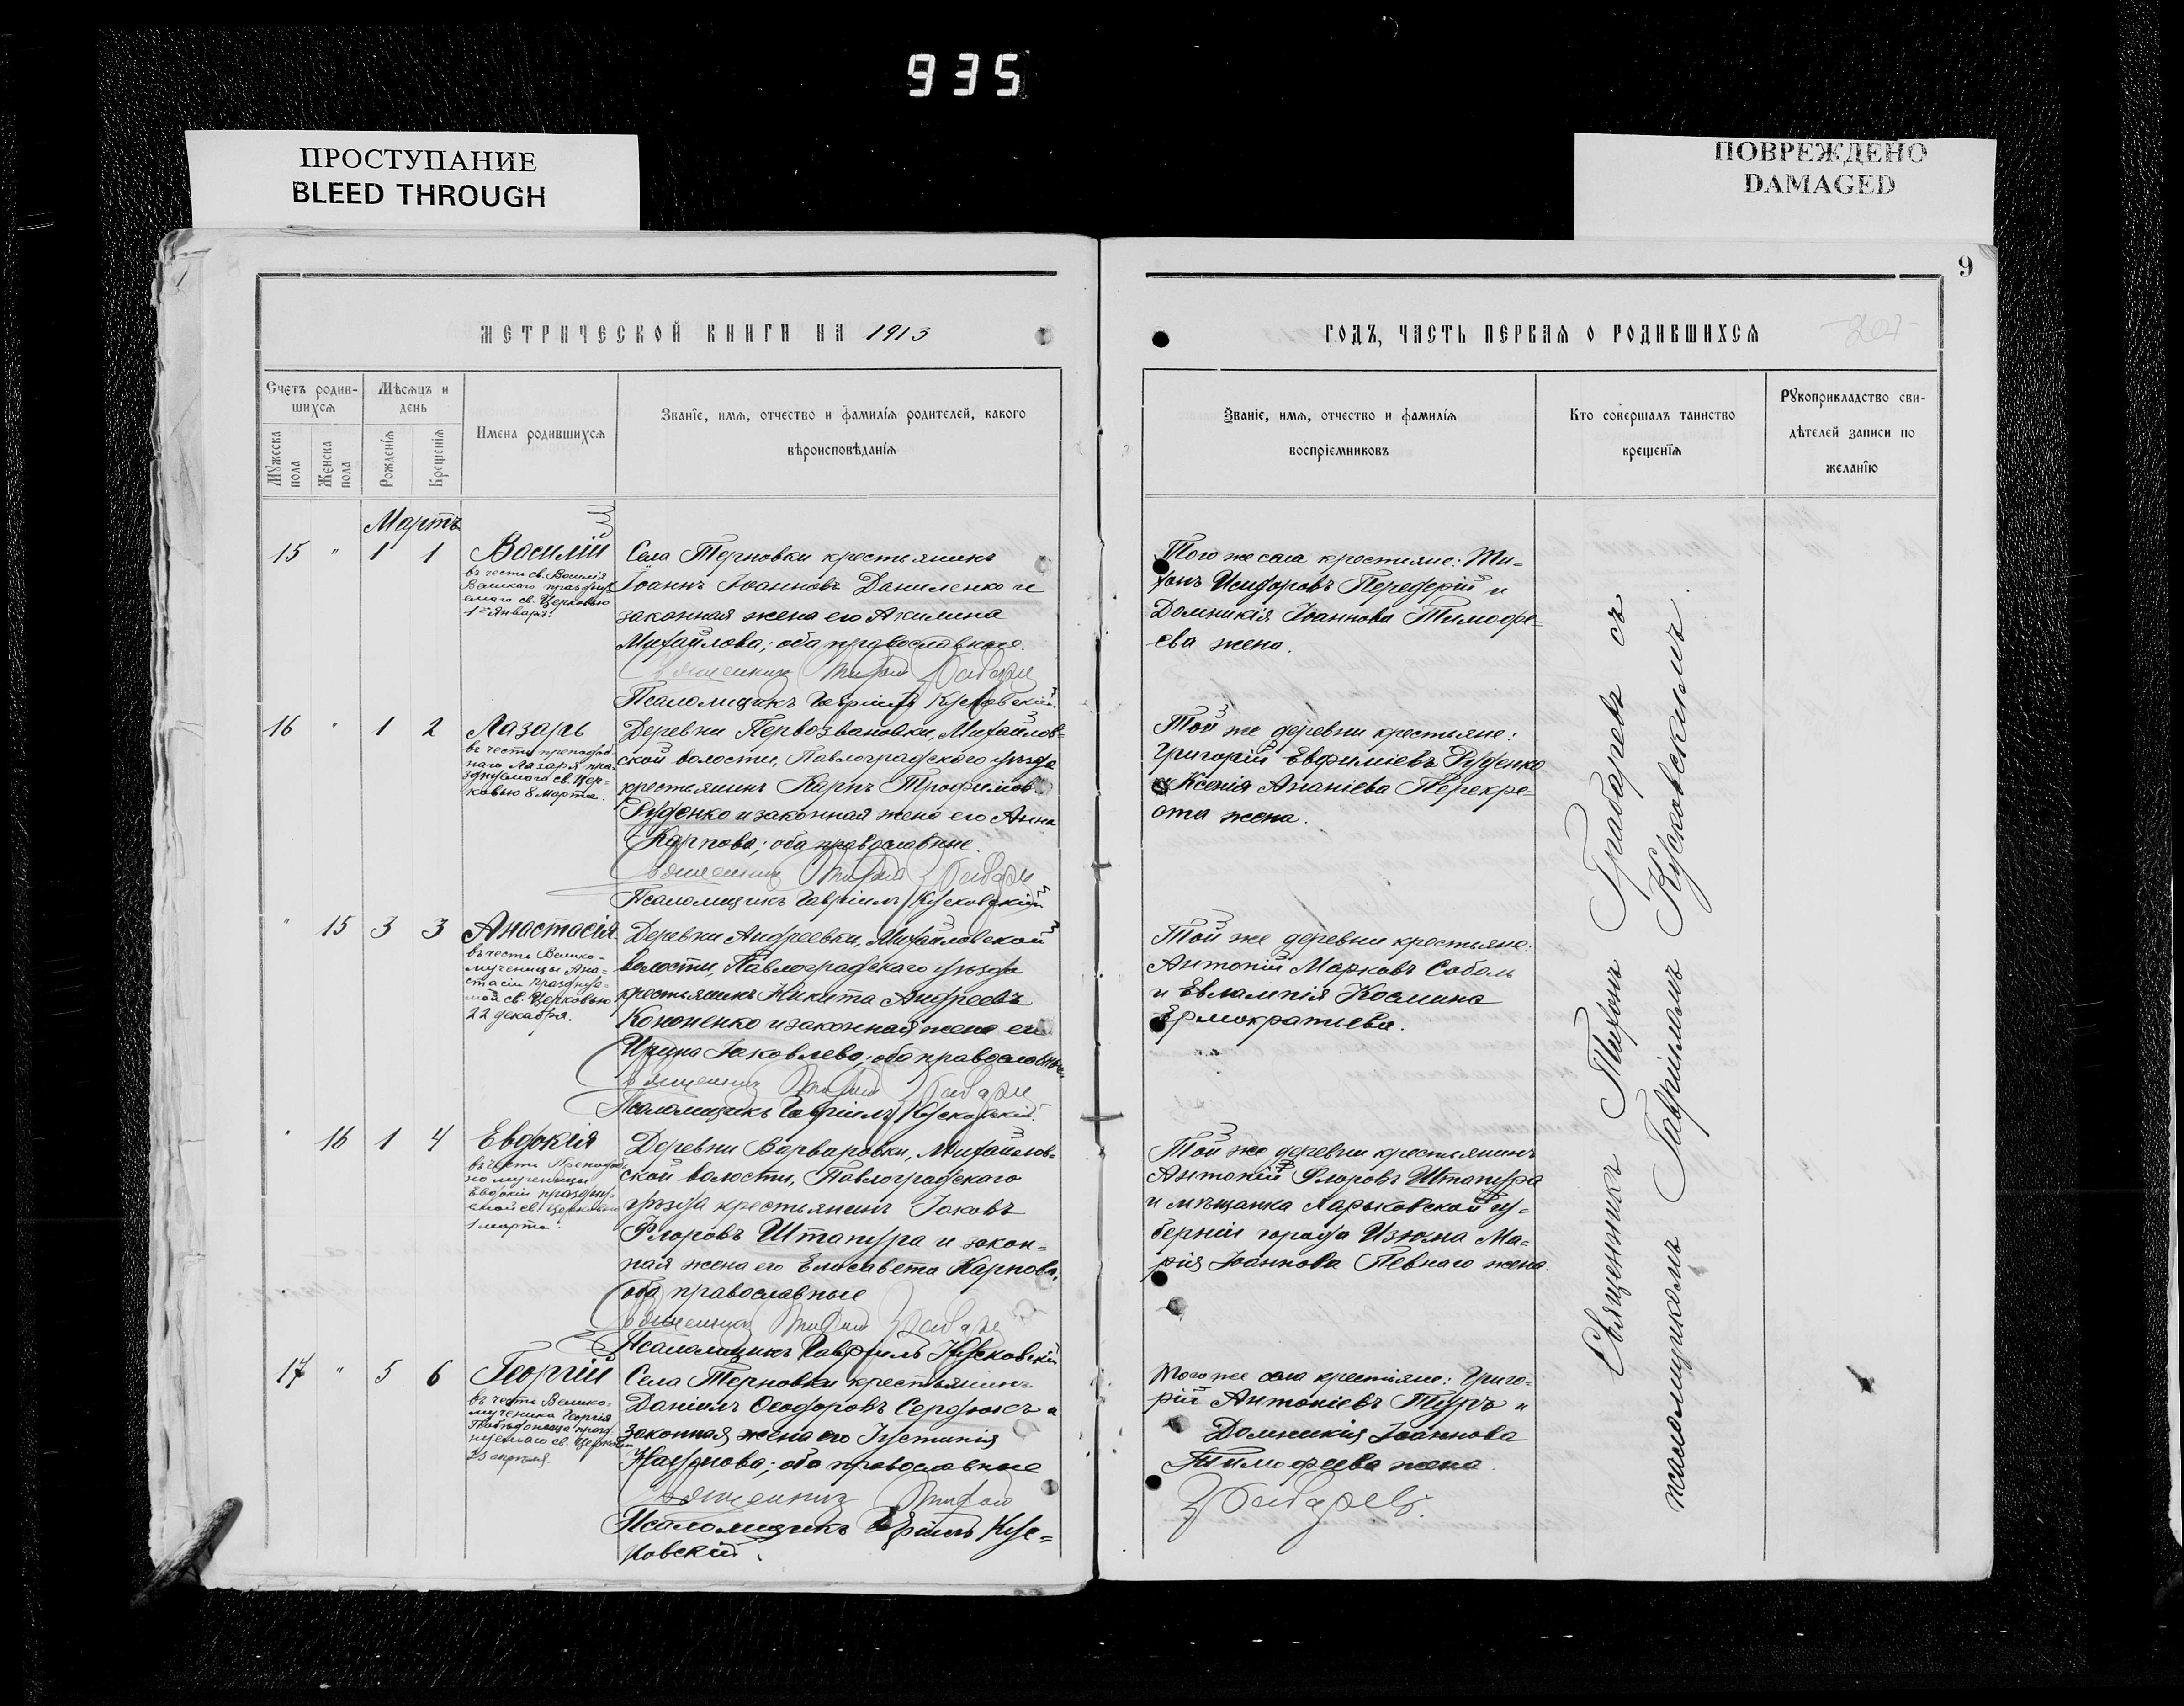 935
ПРОСТУПАНИЕ
BLEED THROUGH
ПОВРЕЖДЕНО
DAMAGED
9
МЕТРИЧЕСКОЙ КНИГИ НА 1913
ГОДЪ, ЧАСТЬ ПЕРВАЯ О РОДИВШИХСЯ
Счетъ родив-
шихся
Мѣсяцъ и
день
Мужеска пола
Женска пола
Рожденія
Крещенія
Имена родившихся
Званіе, имя, отчество и фамилія родителей, какого
вѣроисповѣданія
Званіе, имя, отчество и фамилія
воспріемниковъ
Кто совершалъ таинство
крещенія
Рукоприкладство сви-
дѣтелей записи по
желанію
Мартъ
15 " 1 1
Василій
въ честь св. Василія
Великаго праздну
емаго св. Церковью
1го Января.
Села Терновки крестьянинъ
Іоаннъ Іоанновъ Даниленко и
законная жена его Акилина
Михайлова; оба православные.
Священникъ Тихонъ Грабаревъ
Псаломщикъ Гавріилъ Кусковскій.
Того же села крестьяне: Ти-
хонъ Исидоровъ Передерій и
Домникія Іоаннова Тимофе-
ева жена.
16 " 1 2
Лазарь
въ честь преподоб-
наго Лазаря пра-
зднуемаго св. Цер-
ковью 8 марта.
Деревни Первозвановки, Михайлов-
ской волости, Павлоградскаго уѣзда
крестьянинъ Карпъ Трофимовъ
Руденко и законная жена его Анна
Карпова; оба православные.
Священникъ Тихонъ Грабаревъ
Псаломщикъ Гавріилъ Кусковскій
Той же деревни крестьяне:
Григорій Евфиміевъ Руденко
и Ксенія Ананіева Перекре-
ста жена.
" 15 3 3
Анастасія
въ честь Велико-
мученицы Ана-
стасіи празднуе-
мой св. Церковью
22 декабря.
Деревни Андреевки, Михайловской
волости, Павлоградскаго уѣзда
крестьянинъ Никита Андреевъ
Кононенко и законная жена его
Ирина Іаковлева; оба православные
Священникъ Тихонъ Грабаревъ
Псаломщикъ Гавріилъ Кусковскій.
Той же деревни крестьяне:
Антоній Марковъ Соболь
и Евлампія Космина
" 16 1 4
Евдокія
въ честь Преподоб-
но мученицы
Евдокіи праздну-
емой св. Церковью
1 марта.
Деревни Варваровки, Михайлов-
ской волости, Павлоградскаго
уѣзда крестьянинъ Іаковъ
Флоровъ Штапура и закон-
ная жена его Елисавета Карпова,
оба православные
Священникъ Тихонъ Грабаревъ
Псаломщикъ Гавріилъ Кусковскій
Той же деревни крестьянинъ
Антоній Флоровъ Штапура
и мѣщанка Харьковской гу-
берніи города Изюма Ма-
рія Іоаннова Певнаго жена.
17 " 5 6
Георгій
въ честь Велико-
мученика Георгія
Побѣдоносца празд
нуемаго св. Церковью
23 апрѣля.
Села Терновки крестьянинъ
Даніилъ Ѳеодоровъ Сердюкъ и
законная жена его Іустинія
Наумова; оба православные
Священникъ Тихонъ
Псаломщикъ Гавріилъ Кус-
ковскій.
Того же села крестьяне: Григо-
рій Антоніевъ Туръ и
Домникія Іоаннова
Тимофеева жена.
Грабаревъ.
Священникъ Тихонъ Грабаревъ съ
псаломщикомъ Гавріиломъ Кусковскимъ.